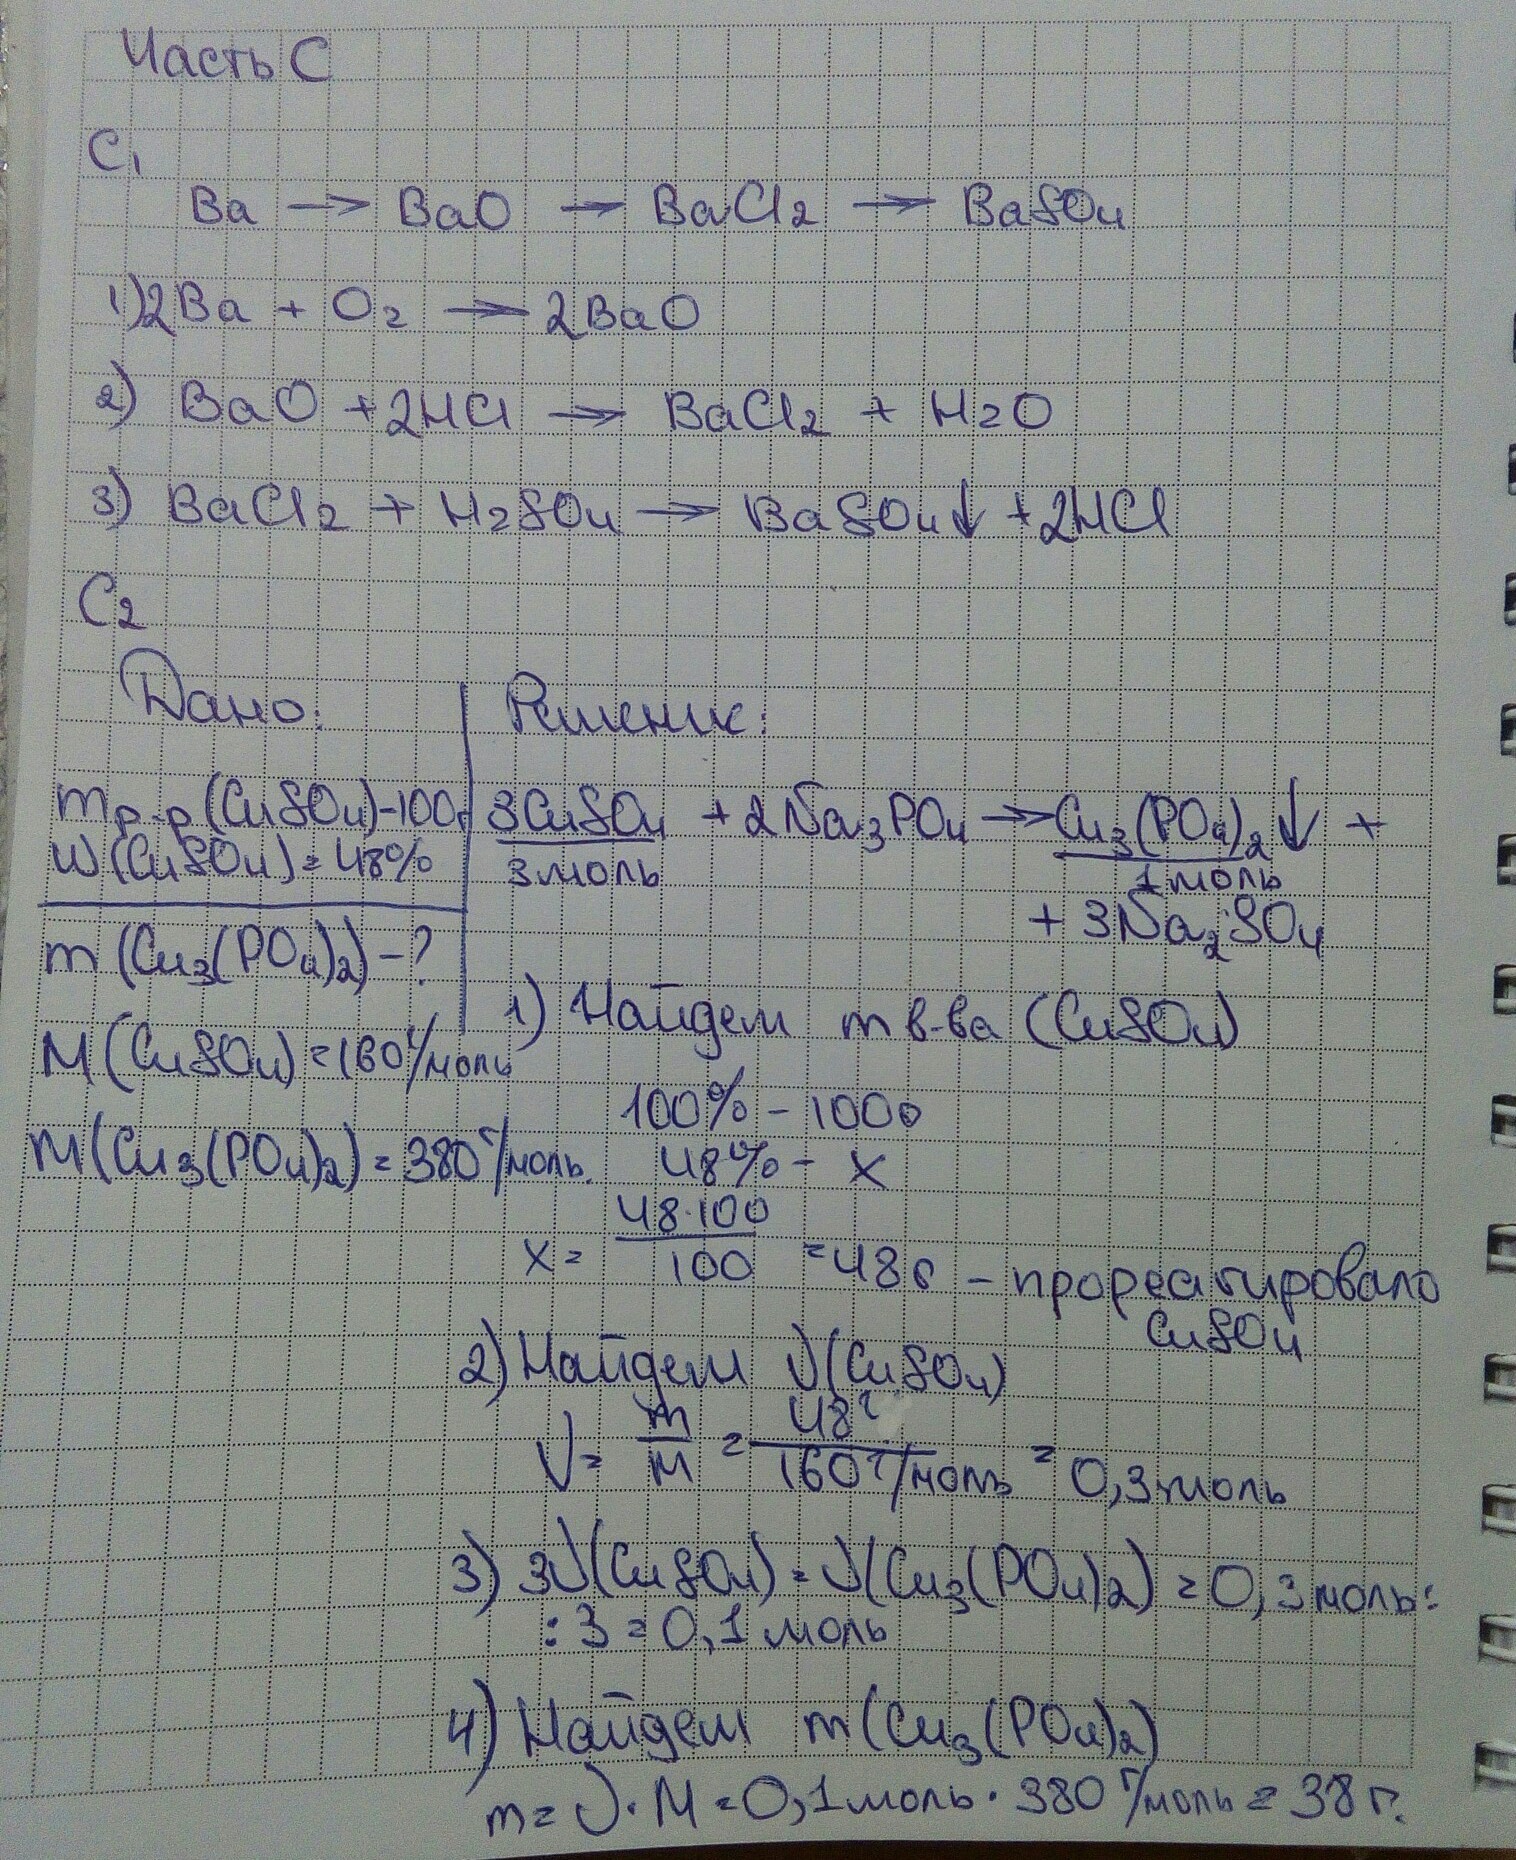 Часть С
С1
Ba → BaO → BaCl2 → BaSO4
1) 2Ba + O2 → 2BaO
2) BaO + 2HCl → BaCl2 + H2O
3) BaCl2 + H2SO4 → BaSO4↓ + 2HCl
С2
Дано:
mр-р (CuSO4) - 100г
W (CuSO4) = 48%
m (Cu3(PO4)2) - ?
M (CuSO4) = 160 г/моль
M (Cu3(PO4)2) = 380 г/моль.
Решение:
3CuSO4 + 2Na3PO4 → Cu3(PO4)2↓ +
3 моль 1 моль
+ 3Na2SO4
1) Найдем m в-ва (CuSO4)
100% - 100г
48% - x
x = 48·100/100 = 48г - прореагировало
CuSO4
2) Найдем ν(CuSO4)
ν = m/M = 48г/160г/моль = 0,3 моль
3) 3ν(CuSO4) = ν(Cu3(PO4)2) = 0,3 моль :
: 3 = 0,1 моль
4) Найдем m (Cu3(PO4)2)
m = ν · M = 0,1 моль · 380 г/моль = 38 г.